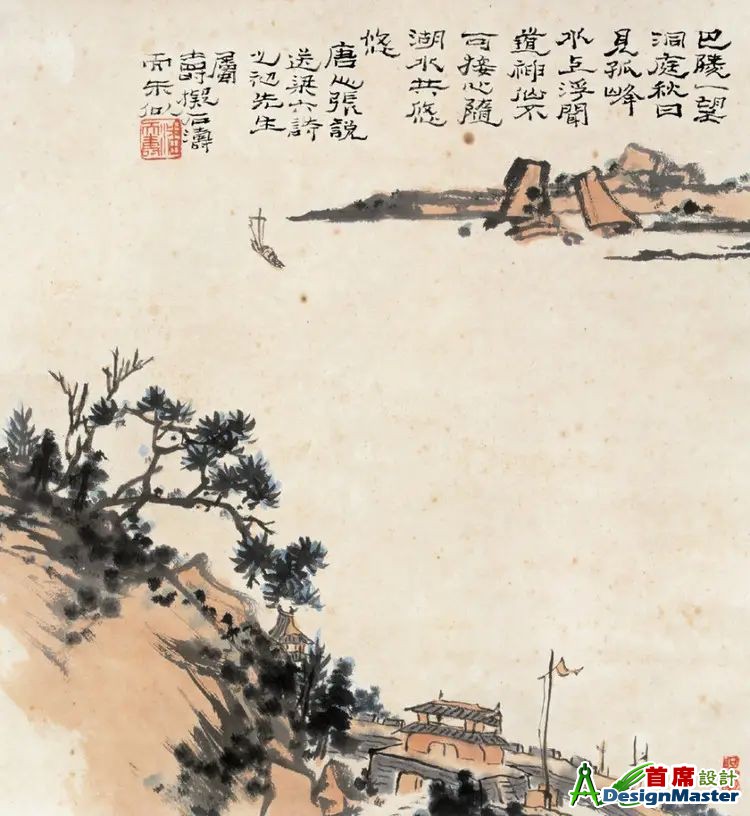 巴陵一望
洞庭秋日
見孤峰
水上浮聞
道神仙不
可接心隨
湖水共悠
悠
唐人張說
送梁六詩
先生
屬
壽擬石濤
而未似
首席設計
DesignMaster